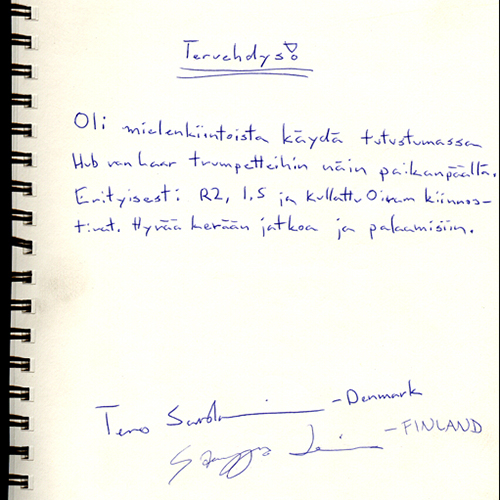 Tervehdys!
Oli mielenkiintoista käydä tutustumassa
Hub van Laar trumpetteihin näin paikanpäällä.
Erityisesti R2, 1,5 ja kullattu Oiram kiinnos-
tivat. Hyvää kevään jatkoa ja palaamisiin.
Tero - Denmark
- FINLAND